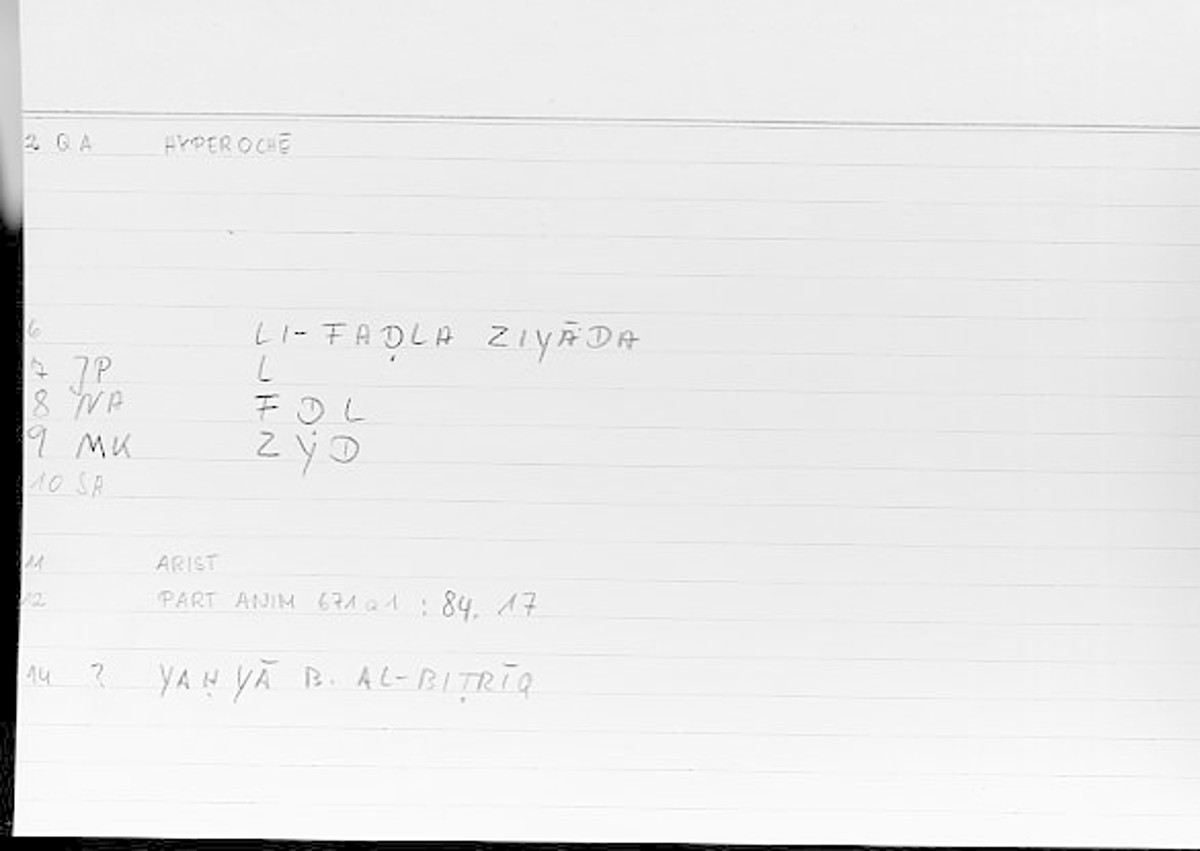 2 QA HYPEROCHĒ
6 LI-FAḌLA ZIYĀDA
7 JP L
8 NA F Ḍ L
9 MK Z Y D
10 SA
11 ARIST
12 PART ANIM 671a1 : 84. 17
14 ? YAḤYĀ B. AL-BIṬRĪQ